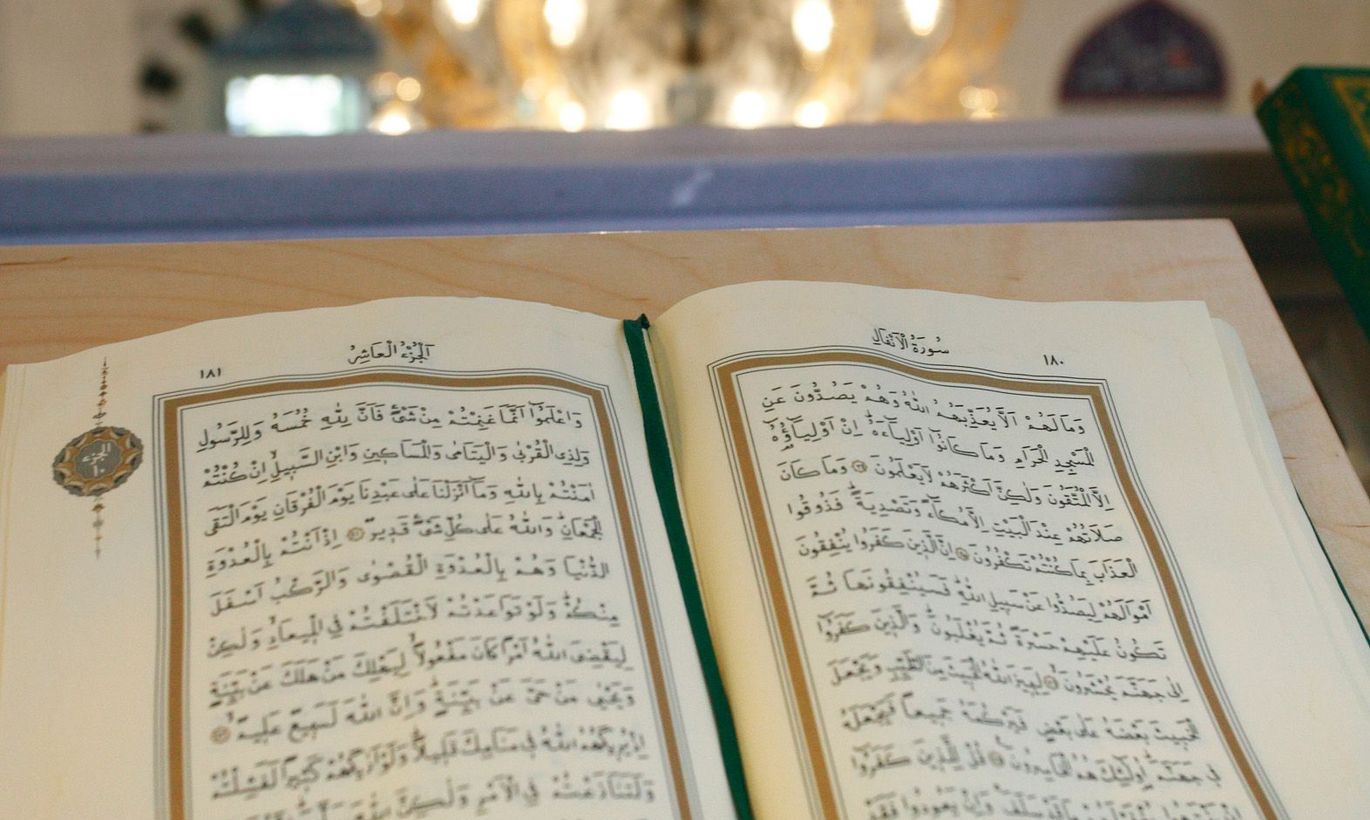 سُورَةُ الْاَنْفَالِ
١٨٠
وَمَا لَهُمْ اَلَّا يُعَذِّبَهُمُ اللّٰهُ وَهُمْ يَصُدُّونَ عَنِ
الْمَسْجِدِ الْحَرَامِ وَمَا كَانُٓوا اَوْلِيَٓاءَهُ اِنْ اَوْلِيَٓاؤُهُٓ
اِلَّا الْمُتَّقُونَ وَلٰكِنَّ اَكْثَرَهُمْ لَا يَعْلَمُونَ وَمَا كَانَ
صَلَاتُهُمْ عِنْدَ الْبَيْتِ اِلَّا مُكَٓاءً وَتَصْدِيَةً فَذُوقُوا
الْعَذَابَ بِمَا كُنْتُمْ تَكْفُرُونَ اِنَّ الَّذِينَ كَفَرُوا يُنْفِقُونَ
اَمْوَالَهُمْ لِيَصُدُّوا عَنْ سَبِيلِ اللّٰهِ فَسَيُنْفِقُونَهَا ثُمَّ
تَكُونُ عَلَيْهِمْ حَسْرَةً ثُمَّ يُغْلَبُونَ وَالَّذِينَ كَفَرُٓوا
اِلٰى جَهَنَّمَ يُحْشَرُونَ لِيَمِيزَ اللّٰهُ الْخَبِيثَ مِنَ الطَّيِّبِ وَيَجْعَلَ
الْخَبِيثَ بَعْضَهُ عَلٰى بَعْضٍ فَيَرْكُمَهُ جَمِيعاً فَيَجْعَلَهُ
فِي جَهَنَّمَ اُولٰٓئِكَ هُمُ الْخَاسِرُونَ قُلْ لِلَّذِينَ كَفَرُٓوا
مَا قَدْ سَلَفَ وَاِنْ يَعُودُوا فَقَدْ
اَلْجُزْءُ الْعَاشِرُ
١٨١
وَاعْلَمُٓوا اَنَّمَا غَنِمْتُمْ مِنْ شَيْءٍ فَاَنَّ لِلّٰهِ خُمُسَهُ وَلِلرَّسُولِ
وَلِذِي الْقُرْبٰى وَالْيَتَامٰى وَالْمَسَاكِينِ وَابْنِ السَّبِيلِ اِنْ كُنْتُمْ
اٰمَنْتُمْ بِاللّٰهِ وَمَٓا اَنْزَلْنَا عَلٰى عَبْدِنَا يَوْمَ الْفُرْقَانِ يَوْمَ الْتَقَى
الْجَمْعَانِ وَاللّٰهُ عَلٰى كُلِّ شَيْءٍ قَدِيرٌ اِذْ اَنْتُمْ بِالْعُدْوَةِ
الدُّنْيَا وَهُمْ بِالْعُدْوَةِ الْقُصْوٰى وَالرَّكْبُ اَسْفَلَ
مِنْكُمْ وَلَوْ تَوَاعَدْتُمْ لَاخْتَلَفْتُمْ فِي الْمِيعَادِ وَلٰكِنْ
لِيَقْضِيَ اللّٰهُ اَمْراً كَانَ مَفْعُولاً لِيَهْلِكَ مَنْ هَلَكَ عَنْ بَيِّنَةٍ
وَيَحْيٰى مَنْ حَيَّ عَنْ بَيِّنَةٍ وَاِنَّ اللّٰهَ لَسَمِيعٌ عَلِيمٌ
اِذْ يُرِيكَهُمُ اللّٰهُ فِي مَنَامِكَ قَلِيلاً وَلَوْ اَرٰيكَهُمْ كَثِيراً لَفَشِلْتُمْ
وَلَتَنَازَعْتُمْ فِي الْاَمْرِ وَلٰكِنَّ اللّٰهَ
الجزء
١٠